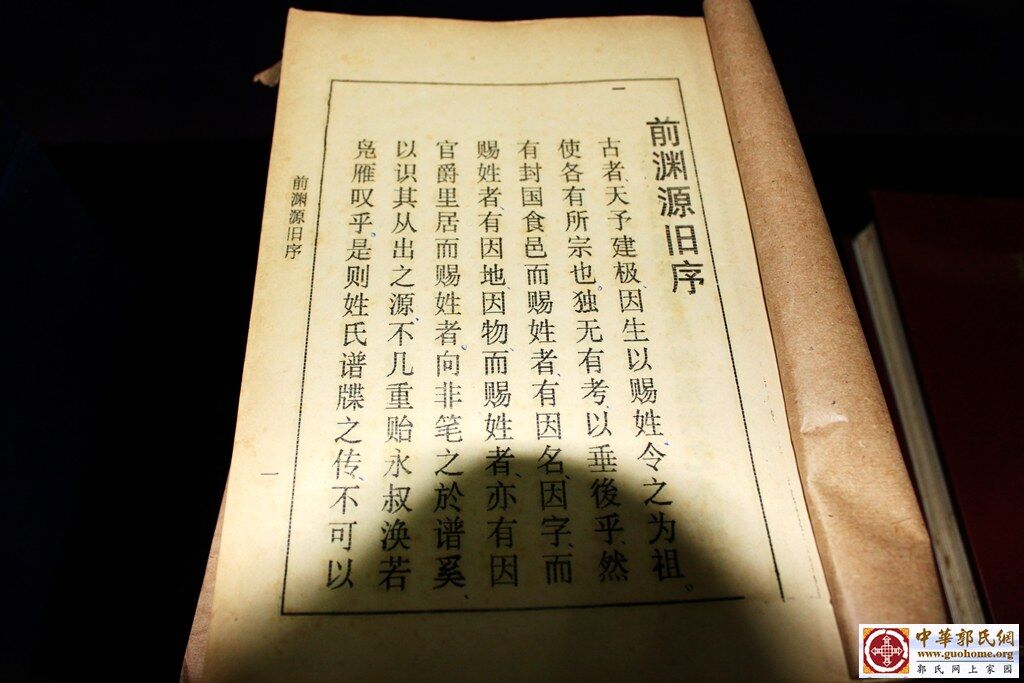 一
前渊源旧序
古者、天予建极因生以赐姓、令之为祖、
使各有所宗也、独无有考、以垂後乎、然
有封国食邑而赐姓者、有因名、因字、而
赐姓者、有因地、因物、而赐姓者、亦有因
官爵里居而赐姓者、向非笔之於谱奚、
以识其从出之源、不几重贻永叔涣若
凫雁叹乎、是则姓氏谱牒之传、不可以
前渊源旧序
一
中華郭氏網
www.guohome.org
郭氏网上家园